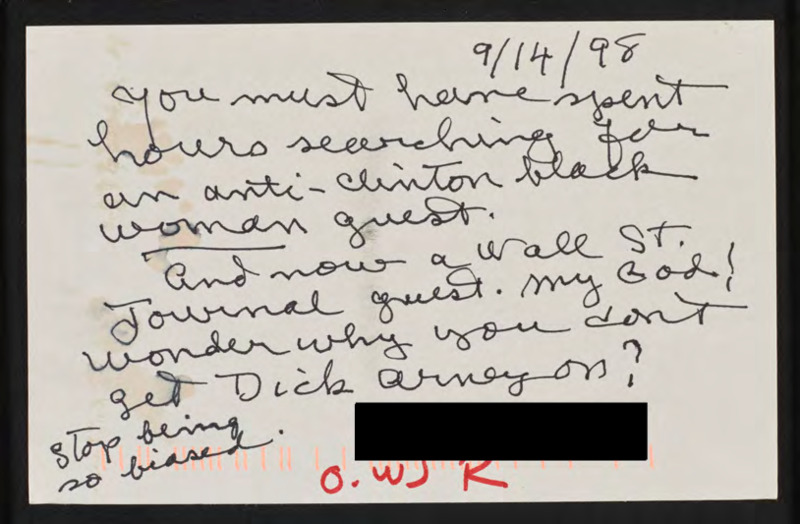 9/14/98
You must have spent
hours searching for
an anti-Clinton black
woman guest.
And now a Wall St.
Journal guest. My God!
Wonder why you don't
get Dick Armey on?
Stop being
so biased.
O. WJ R